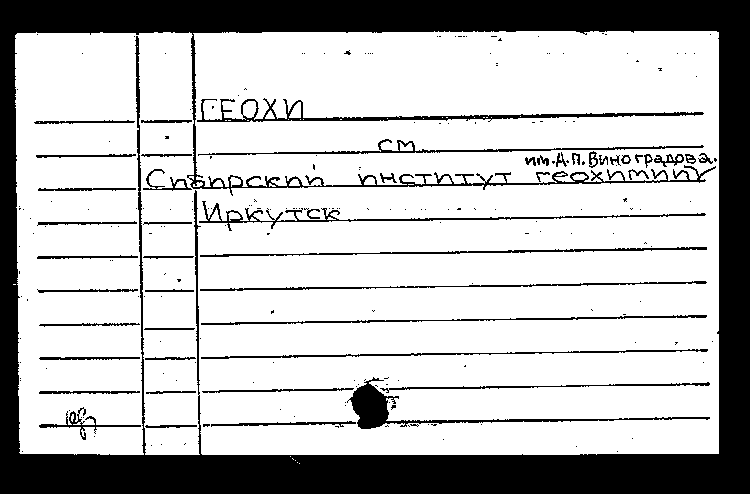 ГЕОХИ
см
им. А.П. Виноградова.
Сибирский институт геохимии
Иркутск